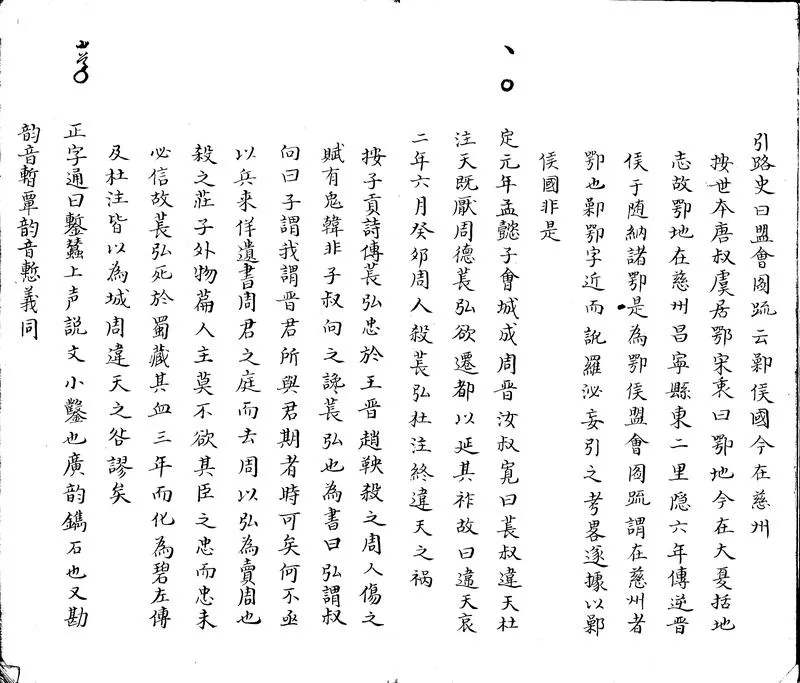 引路史曰盟會圖疏云鄓侯國今在慈州
按世本唐叔虞居鄂宋衷曰鄂地今在大夏括地
志故鄂地在慈州昌寧縣東二里隐六年傳逆晉
侯于随納諸鄂是為鄂侯盟會圖疏謂在慈州者
鄂也鄓鄂字近而訛羅泌妄引之考畧遂據以鄓
侯國非是
定元年孟懿子會城成周晉汝叔寬曰萇叔違天杜
注天既厭周德萇弘欲遷都以延其祚故曰違天哀
二年六月癸卯周人殺萇弘杜注終違天之禍
按子貢詩傳萇弘忠於王晉趙鞅殺之周人傷之
賦有兔韓非子叔向之讒萇弘也為書曰弘謂叔
向曰子謂我謂晉君所與君期者時可矣何不亟
以兵来佯遺書周君之庭而去周以弘為賣周也
殺之莊子外物篇人主莫不欲其臣之忠而忠未
必信故萇弘死於蜀藏其血三年而化為碧左傳
及杜注皆以為城周違天之咎謬矣
正字通曰鏨蠶上声説文小鑿也廣韵鐫石也又勘
韵音暫覃韵音慙義同